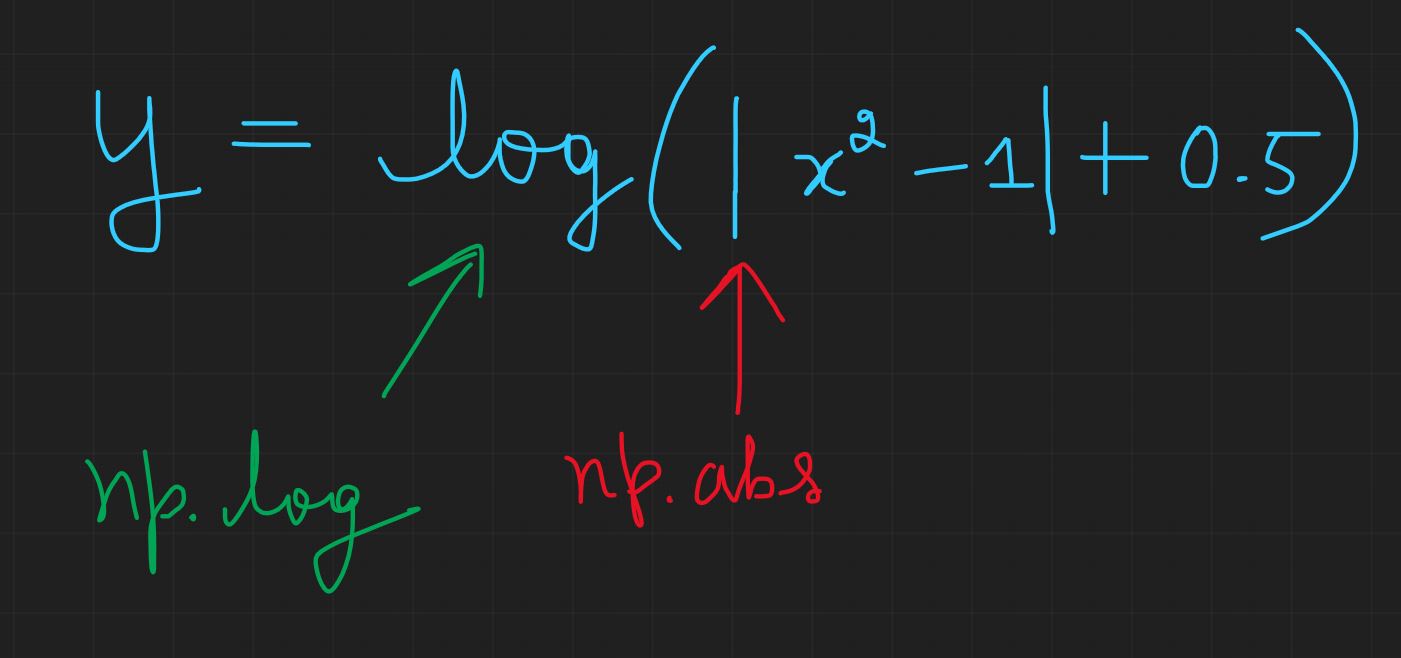 y = log(|x² - 1| + 0.5)
np.log np.abs